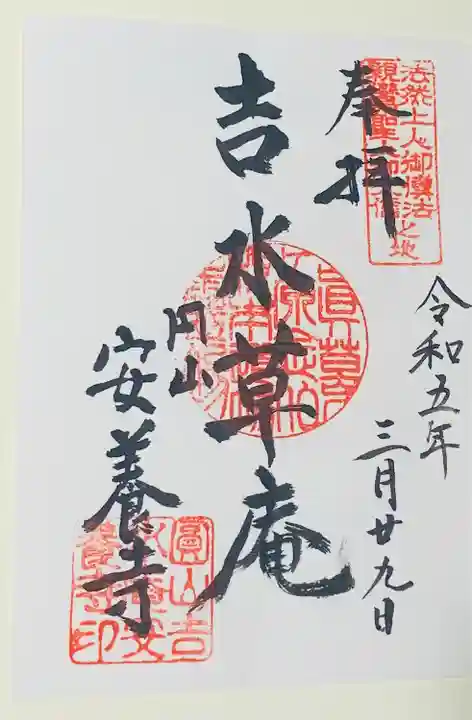 奉拝
法然上人御傳法之地
親鸞聖
令和五年
三月廿九日
吉水草庵
円山
安養寺
圓山吉
水安
養寺印